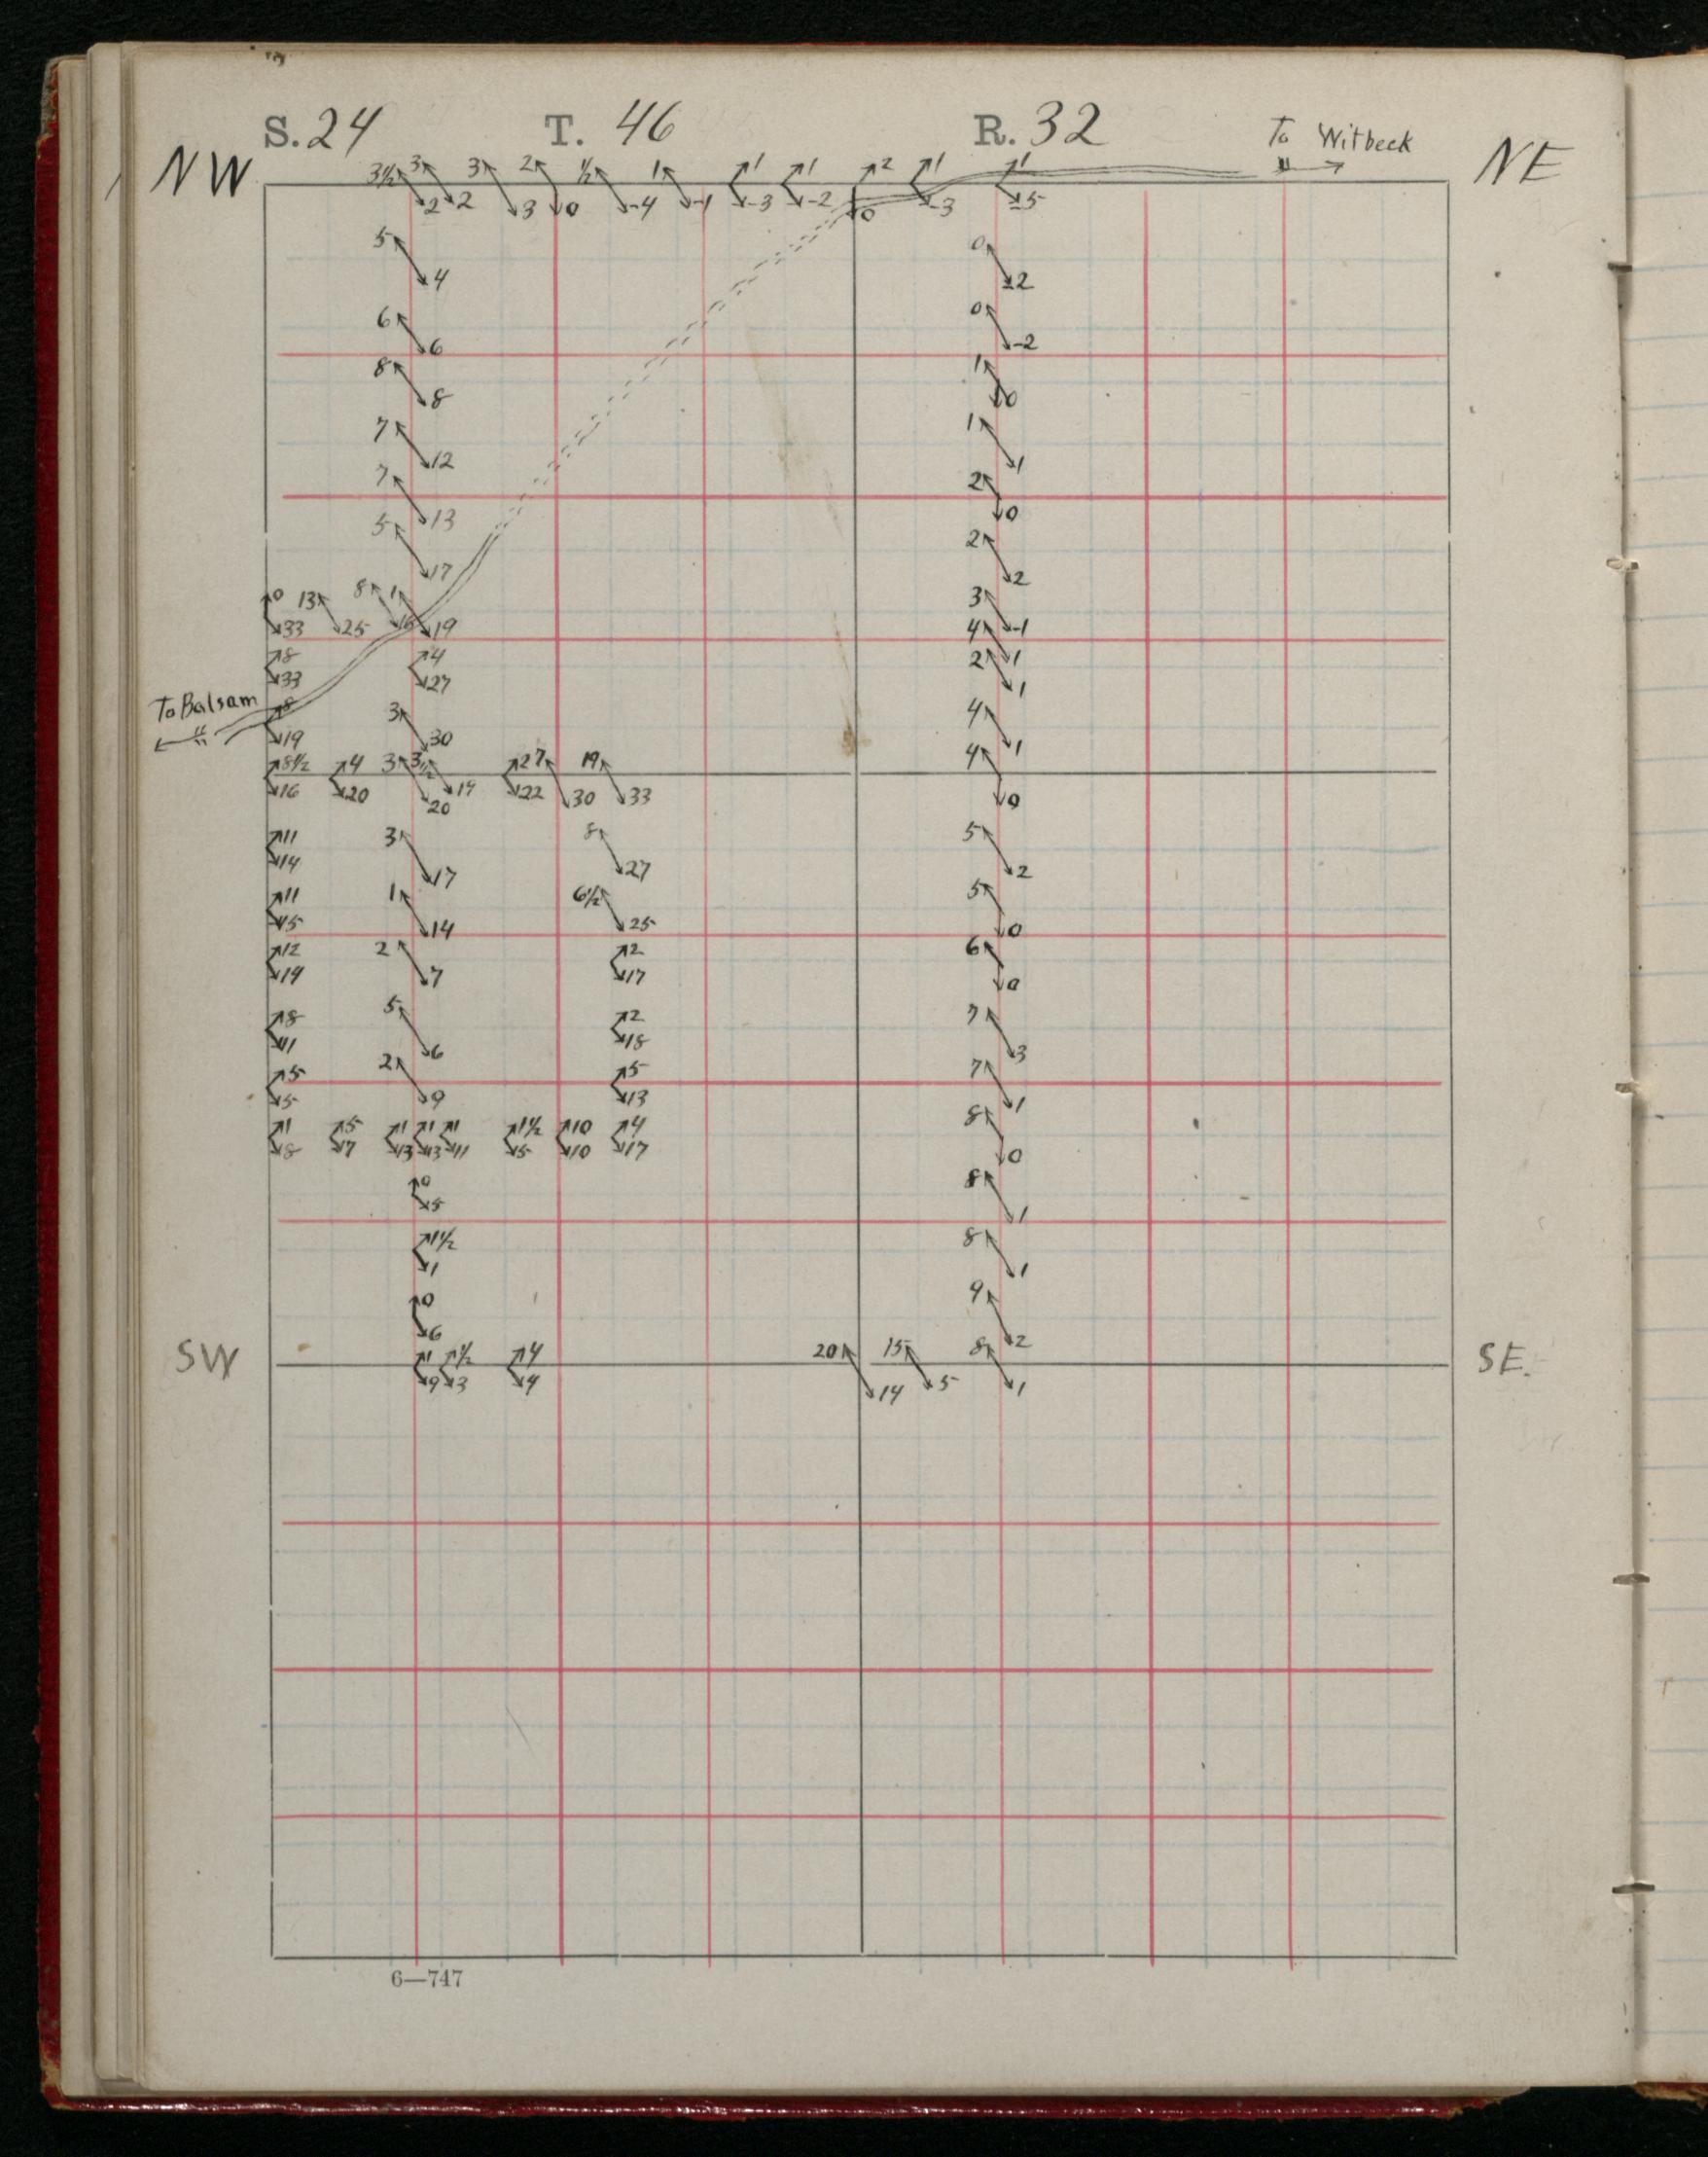 S. 24 T. 46 R. 32 To Witbeck
NW NE
3½ 3 3 2 ½ 1 1 1 2 1 1
2 2 3 0 -4 -1 -3 -2 0 -3 -5
5 0
4 -2
6 0
6 -2
8 1
8 0
7 1
12 1
7 2
13 0
5 2
17 2
0 13 8 1 3
33 25 16 19 -1
8 4 4 1
33 27 2 1
To Balsam 8 3 4
19 30 1
8½ 4 3 3½ 27 19 4
16 20 20 19 22 30 33 0
11 3 8 5
14 17 27 2
11 1 6½ 5
15 14 25 0
12 2 2 6
19 7 17 0
8 5 2 7
11 6 18 3
5 2 5 7
5 9 13 1
1 5 1 1 1 1½ 10 4 8
8 7 13 13 11 5 10 17 0
0 8
5 1
1½ 8
1 1
0 9
6 2
SW 1 ½ 4 20 15 8 SE.
9 3 4 14 5 1
6—747